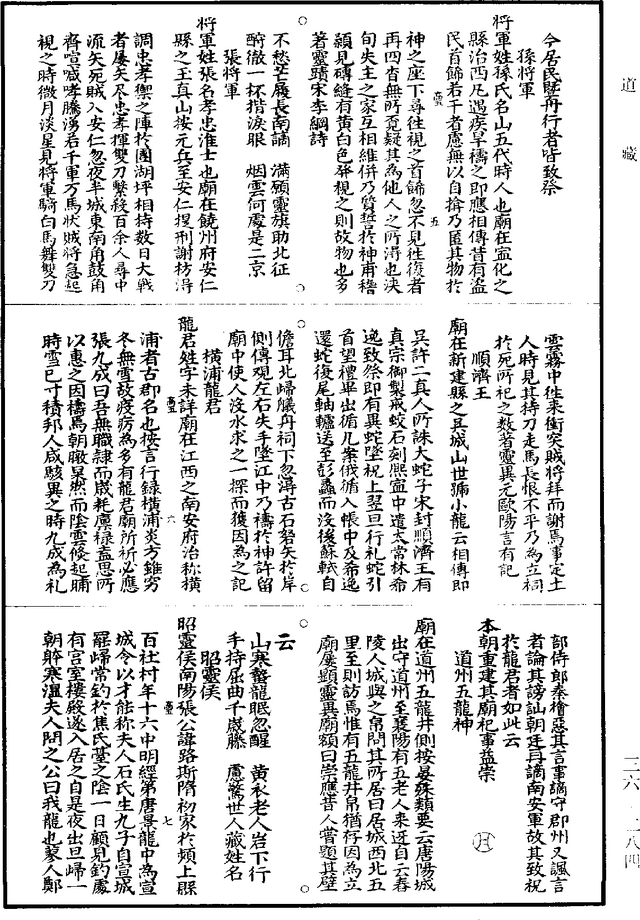 道藏
今居民曁舟行者皆致祭
孫將軍
將軍姓孫氏名山五代時人也廟在宣化之
縣治西凡遇疾旱禱之即應相傳昔有盜
民首飾若干者慮無以自揜乃匿其物於
神之座下尋往視之首飾忽不見徃復者
再四杳無所覔疑其為他人之所得也決
旬失主之家互相維併乃質誓於神甫稽
顙見磚縫有黄白色發視之則故物也多
著靈蹟宋李綱詩
不愁芒屨長南謫 滿願靈旗助北征
酹徹一杯揩淚眼 烟雲何處是二京
張將軍
將軍姓張名孝忠淮士也廟在饒州府安仁
縣之玉真山按元兵至安仁提刑謝枋得
調忠孝禦之陣於團湖坪相持數日大戰
者屢矢尽忠孝揮雙刀繫殺百余人尋中
流矢死賊入安仁忽夜半城東南角鼓角
齊喧喊哮騰湧若千軍万馬狀賊將急起
視之時微月淡星見將軍騎白馬舞雙刀
雲霧中徃来衝突賊將拜而謝焉事定土
人時見其持刀走馬長恨不平乃為立祠
於死所祀之数著靈異元歐陽言有記
順濟王
廟在新建縣之吳城山世號小龍云相傳即
吳許二真人所誅大蛇子宋封順濟王有
真宗御製戒蛟石刻熙寧中遣太常林希
逸致祭即有異蛇墜祝上翌旦行礼蛇引
首望檀畢出循几案俄循入帳中及希逸
還蛇復尾軸轤送至彭蠡而没後蘇軾自
儋耳北歸艤舟祠下忽淂古石砮矢於岸
側傳覌左右失手墜江中乃禱於神許留
廟中使人没水求之一探而獲因為之記
横浦龍君
龍君姓字未詳廟在江西之南安府治称横
浦者古郡名也按言行録横浦炎方雖穷
冬無雪故疫疠為多有龍君廟所祈必應
張九成曰吾無職隷而歳耗廪祿盍思所
以惠之因禱焉朝暾杲然而陰雲倏起晡
時雪已寸積邦人咸駭異之時九成為礼
部侍郎秦檜惡其言事謫守郡州又諷言
者論其謗訕朝廷再謫南安軍故其致祝
於龍君者如此云
本朝重建其廟祀事益崇
道州五龍神
廟在道州五龍井側按晏殊類要云唐陽城
出守道州至襄陽有五老人来迓自云舂
陵人城與之帛問其所居曰居城西北五
里至則訪焉惟有五龍井帛猶存因為立
廟屢顯靈異廟額曰崇應昔人嘗題其壁
云
山寒螯龍眠忽醒 黄衣老人岩下行
手持屈曲千歳藤 慮驚世人藏姓名
昭靈侯
昭靈侯南陽張公諱路斯隋初家於頴上縣
百社村年十六中明經第唐景龍中為宣
城令以才能称夫人石氏生九子自宣城
罷歸常釣於焦氏臺之陰一日顧見釣處
有宮室樓殿遂入居之自是夜出旦歸一
朝躰寒湿夫人問之公曰我龍也蓼人鄭